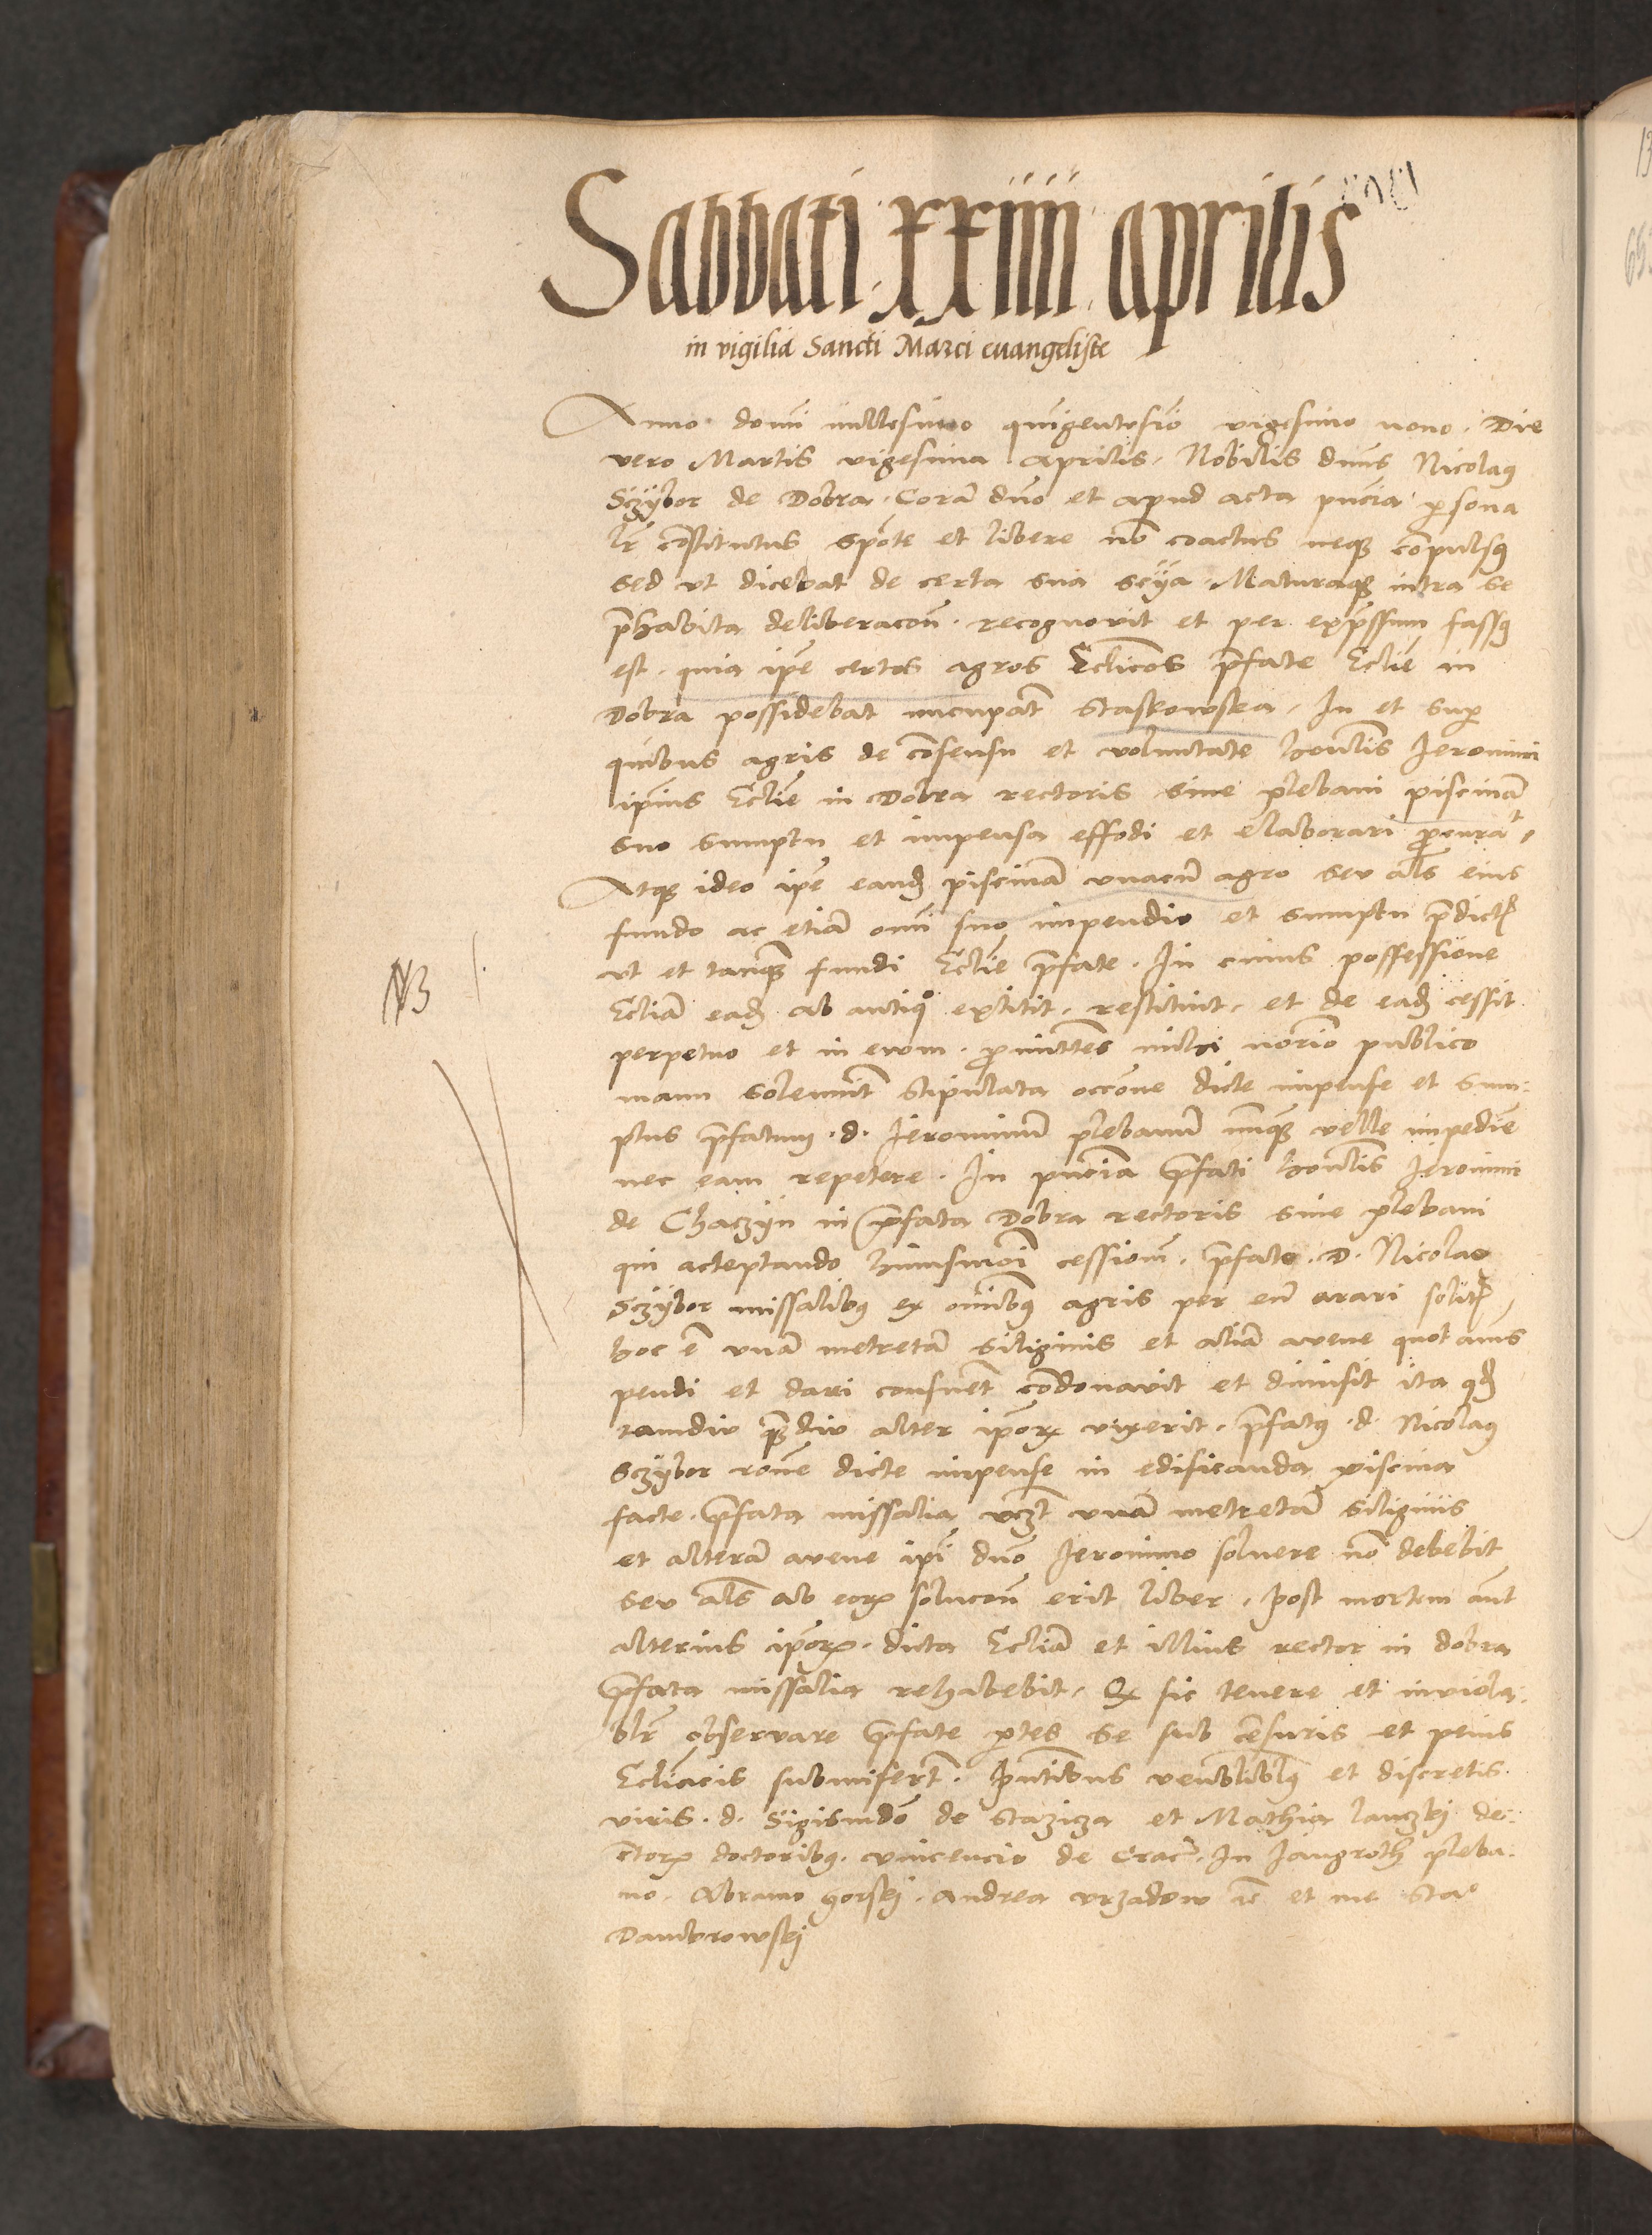 Sabbati · xxiiii · aprilis
in vigilia Sancti Marci euangeliste
Anno domi millesimo quingentesio vigesimo nono. Die
vero Martis vigesima Aprilis, Nobilis dnus Nicolaus
Sczybor de Dobra. Cora dno et apud acta pncia persona
lr constitutus sponte et libere no coactus neque compulsus
sed vt dicebat de certa sua scyia Maturaque intra se
prehabita deliberacoe. recognovit et per expressum fassus
est. quia ipe certos agros Eclicos prefate Eclie in
Dobra possidebat nuncupat Staskowska, In et super
quibus agris de consensu et voluntate honlis Jeronimi
ipius Eclie in Dobra rectoris siue plebani piscina
suo sumptu et impensa effodi et elaborari procurat,
Atque ideo ipe eande piscina vnacu agro seu als eius
fundo ac etia omi suo impendio et sumptu predict
vt et tanque fundi Eclie prefate. In cuius possessione
Eclia eade ab antiquo extitit. restituit, et de eade cessit
perpetuo et in evom. promittes mihi norio publico
manu solemnit stipulata occone dicte impense et sum:
ptus prefatum .d. Jeronimu plebanu nunque velle impedie
nec eam repetere. In pncia prefati honlis Jeronimi
de Chaczyn in prefata Dobra rectoris siue plebani
qui acceptando huiusmoi cessione. prefato. D. Nicolao
Sczybor missalibus ex omibus agris per eu arari solit,
hoc e vna metreta siliginis et alia avene quot anis
pendi et dari consuet condonavit et dimisit ita quod
tamdiu quadiu alter iporum vixerit. prefatus .d. Nicolaus
Sczybor rone dicte impense in edificanda piscina
facte. prefata missalia vczt vna metreta siliginis
et altera avene ipi dno Jeronimo soluere no debebit
seu als ab eorum solucoe erit liber. Post mortem aut
alterius iporum. dicta Eclia et illius rector in dobra
prefata missalia rehabebit, Que sic tenere et inviola:
blr observare prefate ptes se sub cesuris et penis
Ecliacis submisert. Pntibus venblibus et discretis
viris .d. Sigismdo de Staziza et Mathia lanczky de:
ctorum doctoribus. vincencio de Crac. In Jangroth pleba:
no. Abramo gorsky. Andrea vrzadow ic et me Sta
Dambrowsky
NB